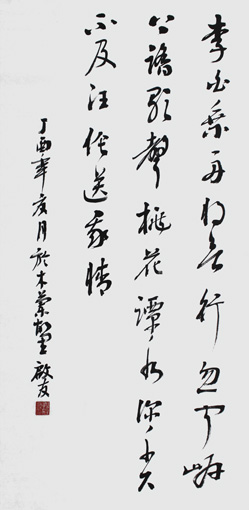 李白乘舟将欲行忽闻岸
上踏歌聲桃花潭水深千尺
不及汪伦送我情
丁酉年夏月於木蘭